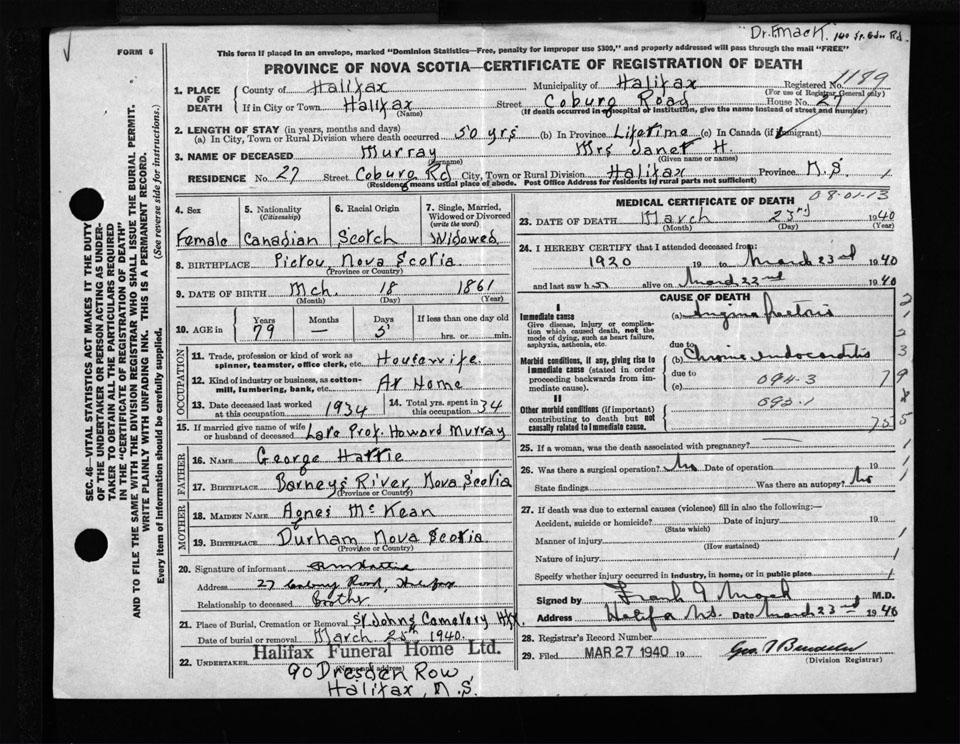 "Dr. F. Mack 140 Sp. Gdn Rd.
FORM 6
This form if placed in an envelope, marked "Dominion Statistics—Free, penalty for improper use $300," and properly addressed will pass through the mail "FREE"
PROVINCE OF NOVA SCOTIA—CERTIFICATE OF REGISTRATION OF DEATH
1. PLACE OF DEATH
County of Halifax Municipality of Halifax Registered No. 1189
(For use of Registrar General only)
If in City or Town Halifax Street Coburg Road House No. 27
(Name) (If death occurred in hospital or institution, give the name instead of street and number)
2. LENGTH OF STAY (in years, months and days)
(a) In City, Town or Rural Division where death occurred 50 yrs (b) In Province Lifetime (c) In Canada (if immigrant)
3. NAME OF DECEASED Murray Mrs Janet H.
(Surname) (Given name or names)
RESIDENCE No. 27 Street Coburg Rd City, Town or Rural Division Halifax Province N.S. 1
(Residence means usual place of abode. Post Office Address for residents in rural parts not sufficient)
4. Sex Female
5. Nationality (Citizenship) Canadian
6. Racial Origin Scotch
7. Single, Married, Widowed or Divorced (write the word) Widowed
8. BIRTHPLACE Pictou Nova Scotia
(Province or Country)
9. DATE OF BIRTH Mch. 18 1861
(Month) (Day) (Year)
10. AGE in Years 79 Months — Days 5 If less than one day
hrs. or min.
OCCUPATION
11. Trade, profession or kind of work as spinner, teamster, office clerk, etc. Housewife.
12. Kind of industry or business, as cotton-mill, lumbering, bank, etc. At Home
13. Date deceased last worked at this occupation 1934
14. Total yrs. spent in this occupation 34
15. If married give name of wife or husband of deceased Late Prof. Howard Murray
FATHER
16. NAME George Hattie
17. BIRTHPLACE Barneys River, Nova Scotia
(Province or Country)
MOTHER
18. MAIDEN NAME Agnes McKean
19. BIRTHPLACE Durham Nova Scotia
(Province or Country)
20. Signature of informant
Address 27 Coburg Road, Halifax
Relationship to deceased Brother
21. Place of Burial, Cremation or Removal St Johns Cemetery Hfx.
Date of burial or removal March 25th 1940.
22. UNDERTAKER Halifax Funeral Home Ltd.
(Name and address)
90 Dresden Row
Halifax, N.S.
MEDICAL CERTIFICATE OF DEATH
08-01-13
23. DATE OF DEATH March 23rd 1940
(Month) (Day) (Year)
24. I HEREBY CERTIFY that I attended deceased from
1920 19 to March 23rd 1940
and last saw h alive on March 22nd 1940
CAUSE OF DEATH
I
Immediate cause
Give disease, injury or complication which caused death, not the mode of dying, such as heart failure, asphyxia, asthenia, etc.
(a) Angina pectoris
due to
Morbid conditions, if any, giving rise to immediate cause (stated in order proceeding backwards from immediate cause).
(b) Chronic endocarditis
due to
(c) 094-3
II
Other morbid conditions (if important) contributing to death but not causally related to immediate cause.
092-1
25. If a woman, was the death associated with pregnancy?
26. Was there a surgical operation? No Date of operation 19
State findings Was there an autopsy? No
27. If death was due to external causes (violence) fill in also the following:—
Accident, suicide or homicide? Date of injury 19
(State which)
Manner of injury
(How sustained)
Nature of injury
Specify whether injury occurred in industry, in home, or in public place
Signed by Frank G Mack M.D.
Address Halifax N.S. Date March 23rd 1940
28. Registrar's Record Number
29. Filed MAR 27 1940 19
(Division Registrar)
SEC. 46—VITAL STATISTICS ACT MAKES IT THE DUTY
OF THE UNDERTAKER OR PERSON ACTING AS UNDERTAKER TO OBTAIN ALL THE PARTICULARS REQUIRED
IN THE "CERTIFICATE OF REGISTRATION OF DEATH"
AND TO FILE THE SAME WITH THE DIVISION REGISTRAR WHO SHALL ISSUE THE BURIAL PERMIT.
WRITE PLAINLY WITH UNFADING INK. THIS IS A PERMANENT RECORD.
Every item of information should be carefully supplied. (See reverse side for instructions.)